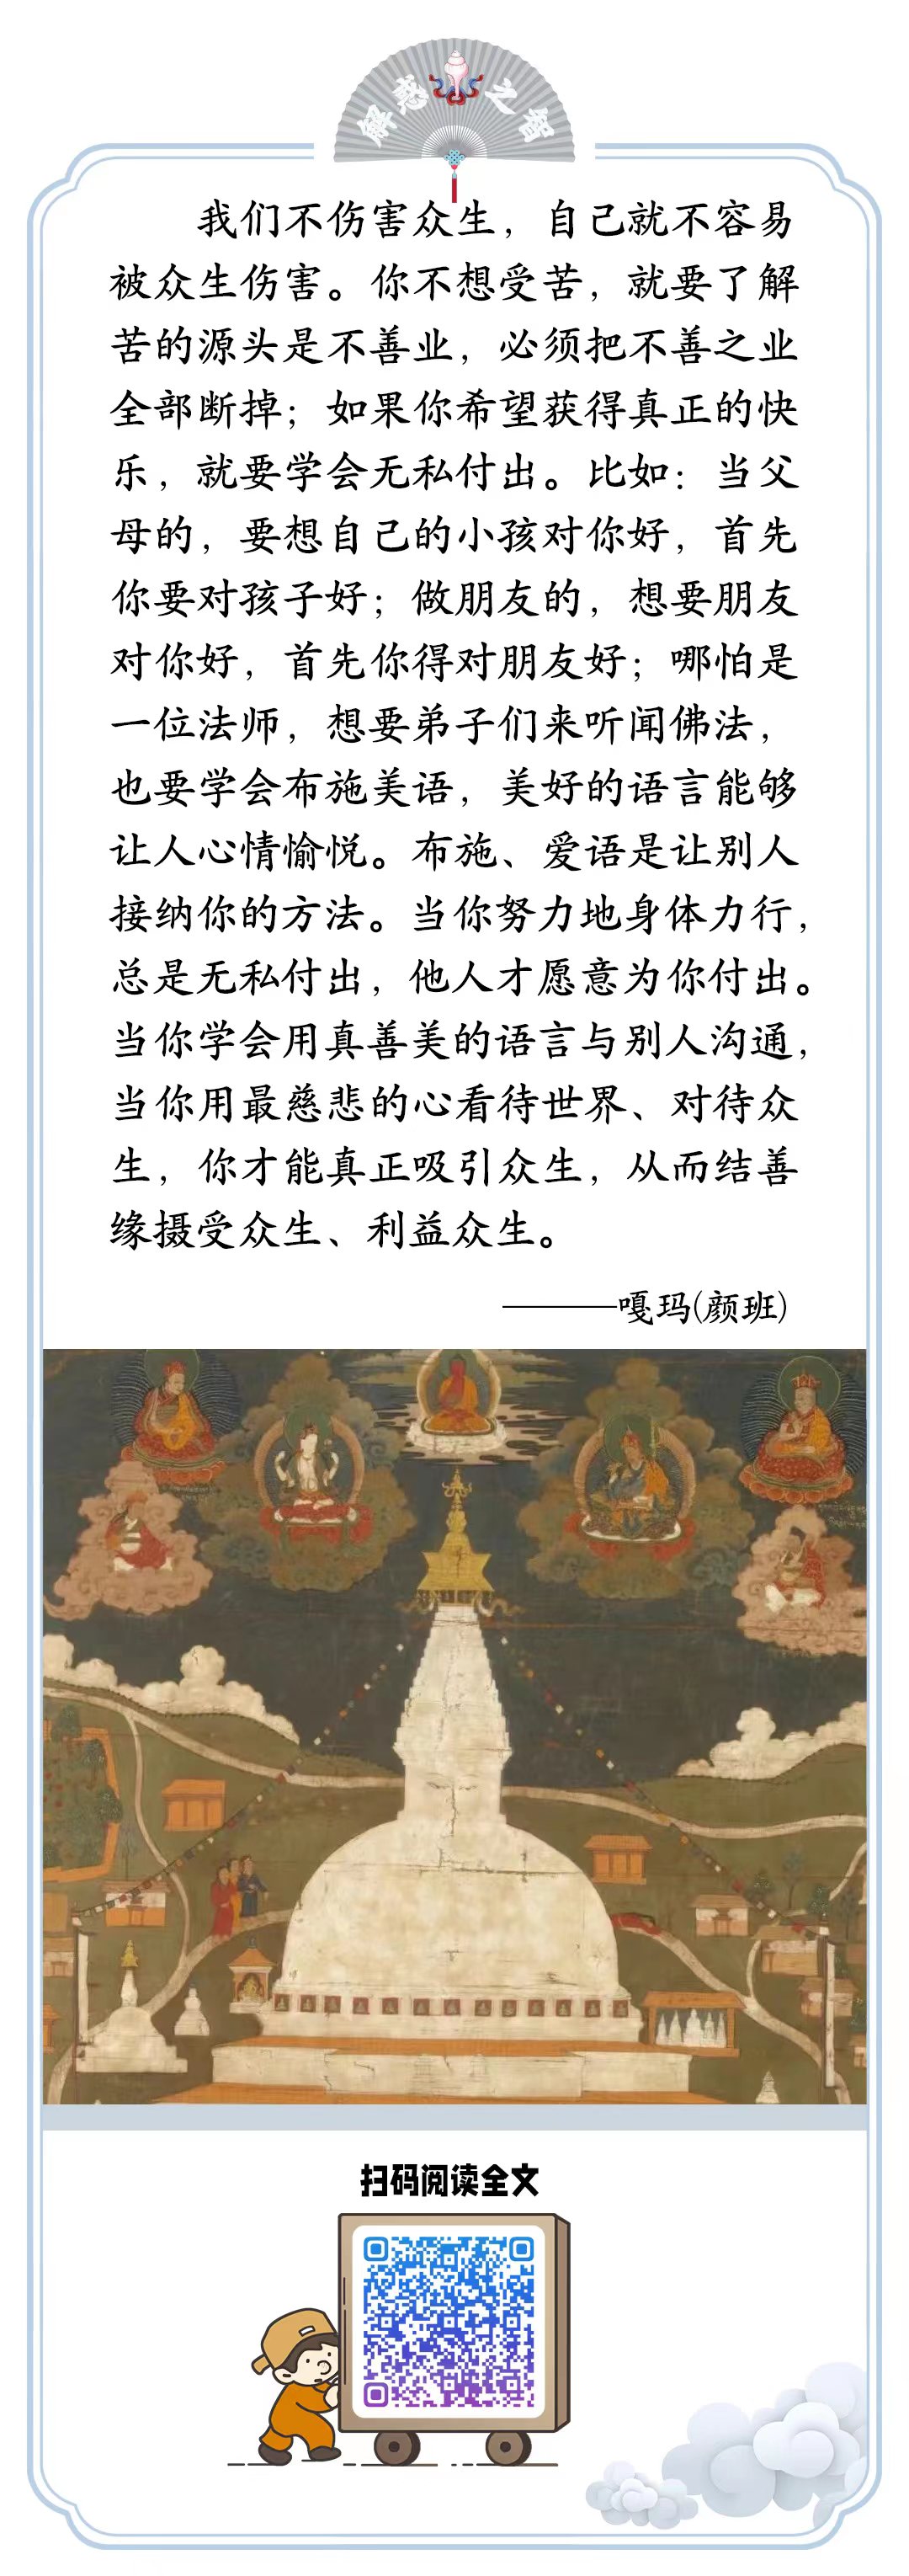 解惑之智
我们不伤害众生，自己就不容易
被众生伤害。你不想受苦，就要了解
苦的源头是不善业，必须把不善之业
全部断掉；如果你希望获得真正的快
乐，就要学会无私付出。比如：当父
母的，要想自己的小孩对你好，首先
你要对孩子好；做朋友的，想要朋友
对你好，首先你得对朋友好；哪怕是
一位法师，想要弟子们来听闻佛法，
也要学会布施美语，美好的语言能够
让人心情愉悦。布施、爱语是让别人
接纳你的方法。当你努力地身体力行，
总是无私付出，他人才愿意为你付出。
当你学会用真善美的语言与别人沟通，
当你用最慈悲的心看待世界、对待众
生，你才能真正吸引众生，从而结善
缘摄受众生、利益众生。
———嘎玛(颜班)
扫码阅读全文